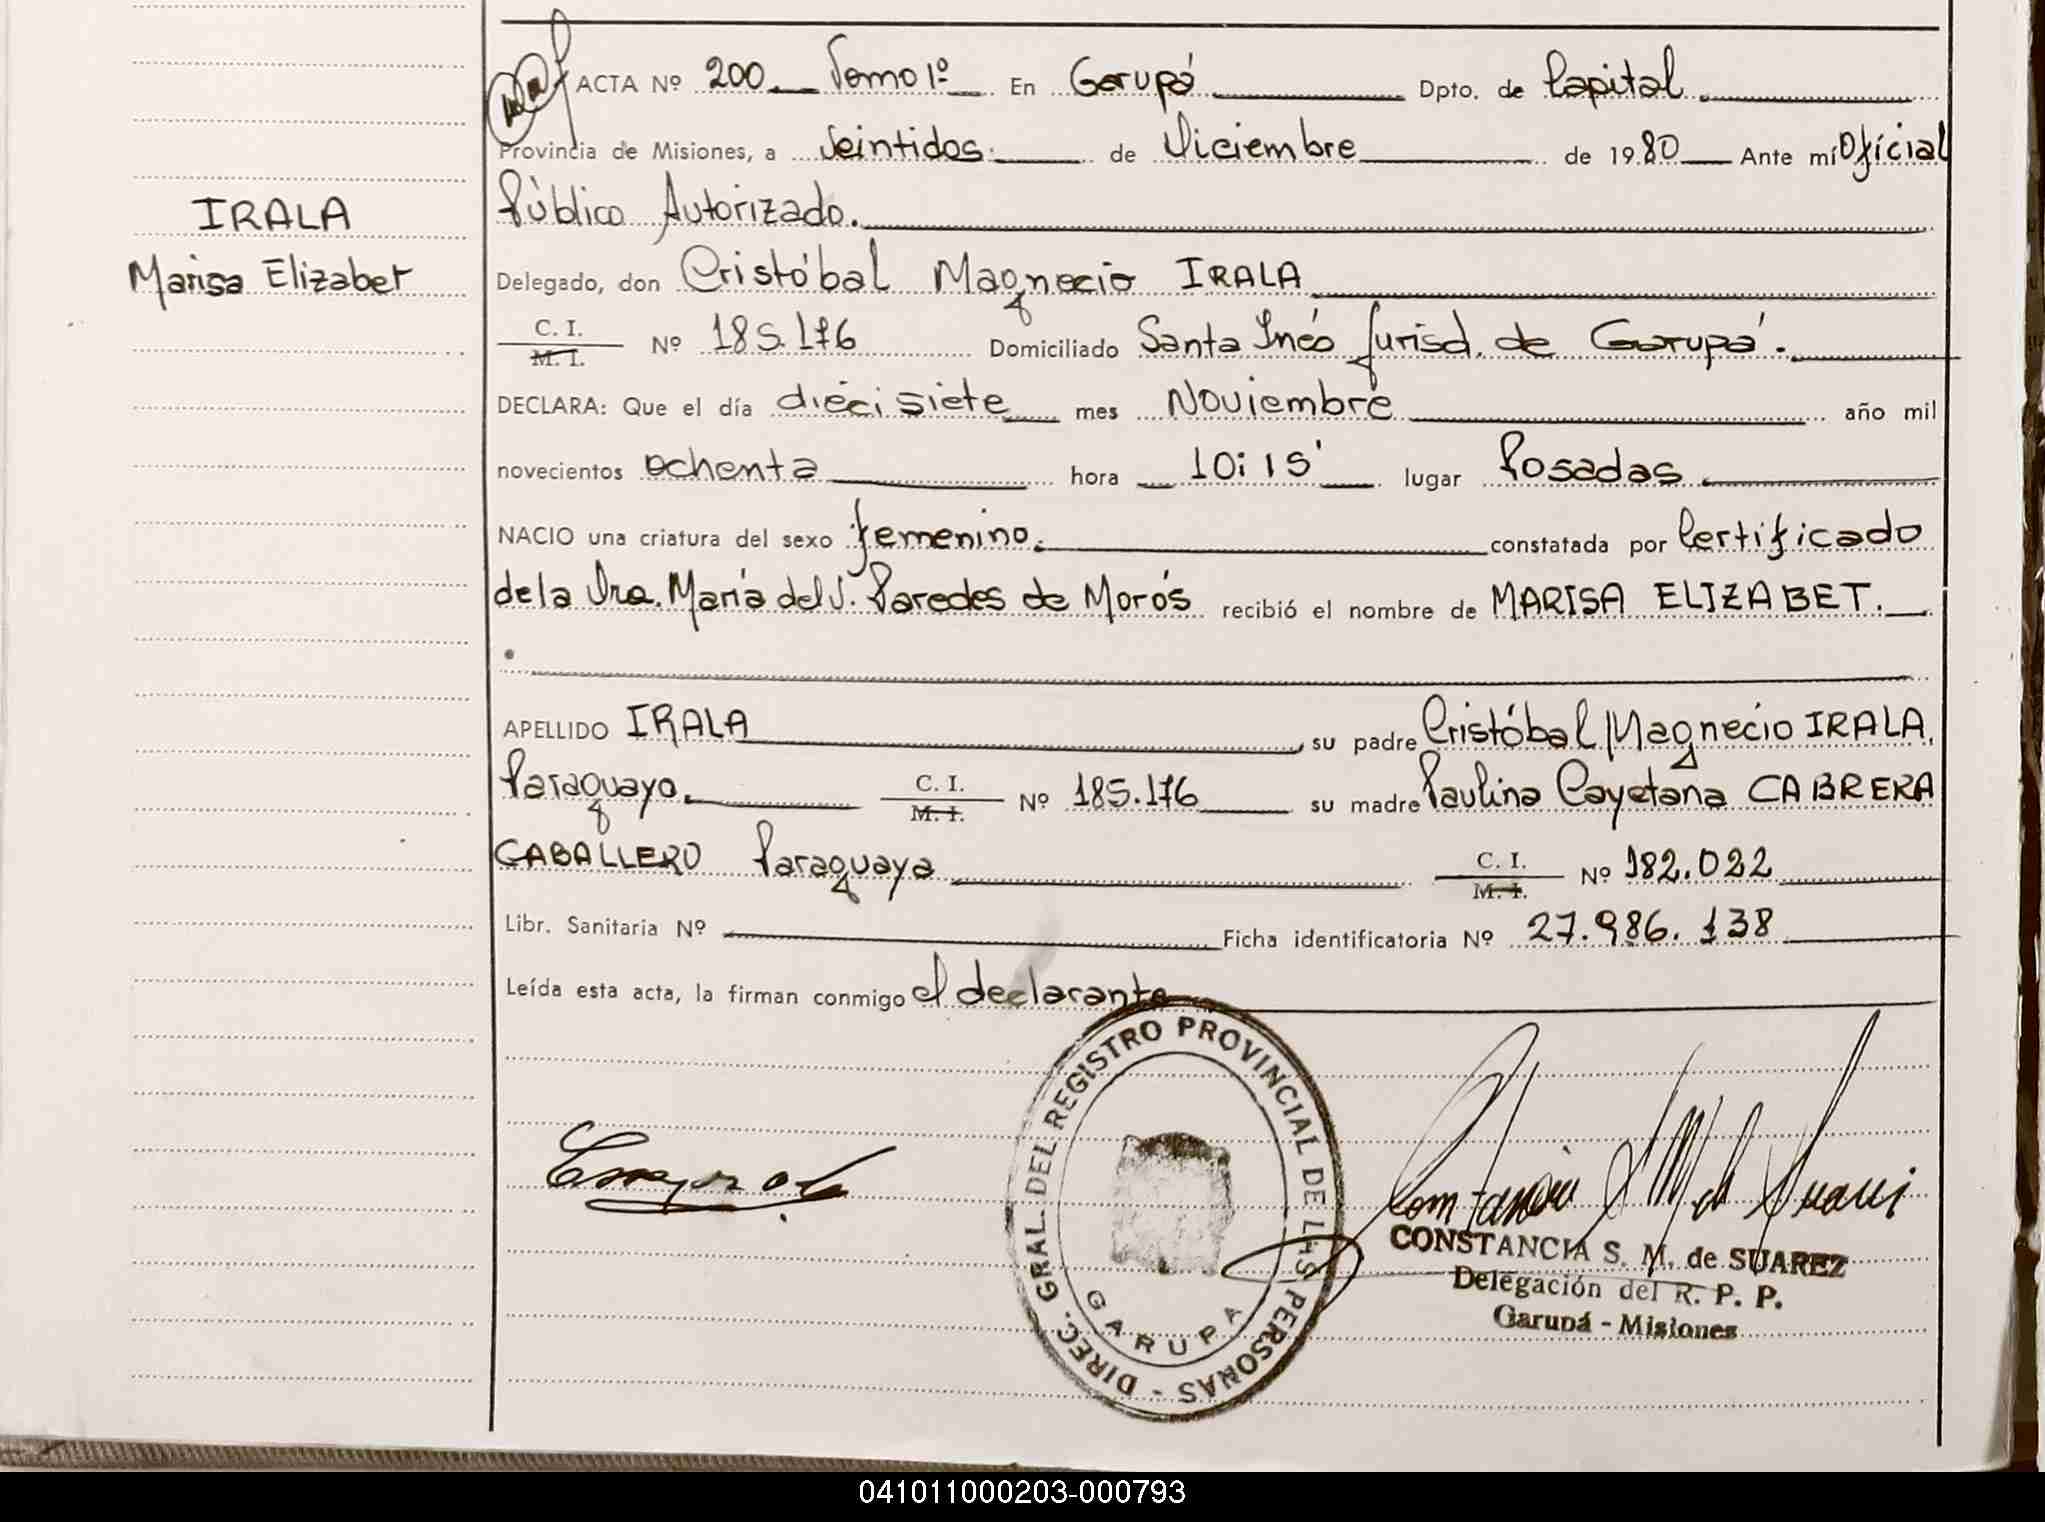 ACTA Nº 200 Tomo 1º En Garupá Dpto. de Capital
Provincia de Misiones, a Veintidos de Diciembre de 1980 Ante mí Oficial
Público Autorizado.
IRALA
Marisa Elizabet
Delegado, don Cristóbal Magnecio IRALA
C. I.
M. I. Nº 185.176 Domiciliado Santa Inés Jurisd. de Garupá.
DECLARA: Que el día dieci siete mes Noviembre año mil
novecientos ochenta hora 10:15' lugar Posadas
NACIO una criatura del sexo femenino. constatada por Certificado
de la Dra. María del J. Paredes de Morós recibió el nombre de MARISA ELIZABET.
APELLIDO IRALA, su padre Cristóbal Magnecio IRALA,
Paraguayo. C. I. Nº 185.176 su madre Paulina Cayetana CABRERA
M. I.
CABALLERO Paraguaya C. I. Nº 182.022
M. I.
Libr. Sanitaria Nº Ficha identificatoria Nº 27.986.138
Leída esta acta, la firman conmigo el declarante
DIREC. GRAL. DEL REGISTRO PROVINCIAL DE LAS PERSONAS -
GARUPA
CONSTANCIA S. M. de SUAREZ
Delegación del R. P. P.
Garupá - Misiones
041011000203-000793